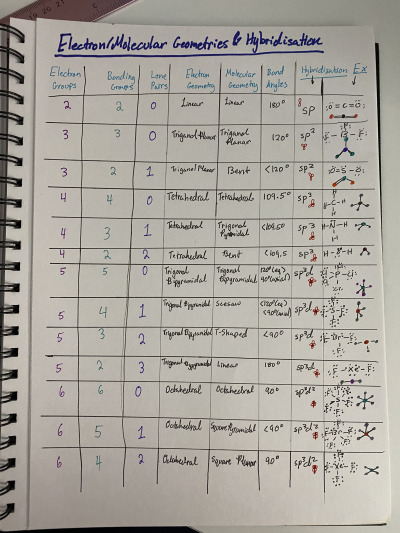 Electron/Molecular Geometries & Hybridisation
Electron Groups Bonding Groups Lone Pairs Electron Geometry Molecular Geometry Bond Angles Hybridisation Ex
2 2 0 Linear Linear 180° sp :O=C=O:
3 3 0 Trigonal Planar Trigonal Planar 120° sp²
3 2 1 Trigonal Planar Bent <120° sp² :O=S-O:
4 4 0 Tetrahedral Tetrahedral 109.5° sp³
4 3 1 Tetrahedral Trigonal Pyramidal <109.5° sp³ H-N-H
4 2 2 Tetrahedral Bent <109.5 sp³
5 5 0 Trigonal Bipyramidal Trigonal Bipyramidal 120°(eq) 90°(axial) sp³d
5 4 1 Trigonal Bipyramidal Seesaw <120°(eq) <90°(axial) sp³d
5 3 2 Trigonal Bipyramidal T-Shaped <90° sp³d
5 2 3 Trigonal Bipyramidal Linear 180° sp³d :F-Xe-F:
6 6 0 Octahedral Octahedral 90° sp³d²
6 5 1 Octahedral Square Pyramidal <90° sp³d²
6 4 2 Octahedral Square Planar 90° sp³d²